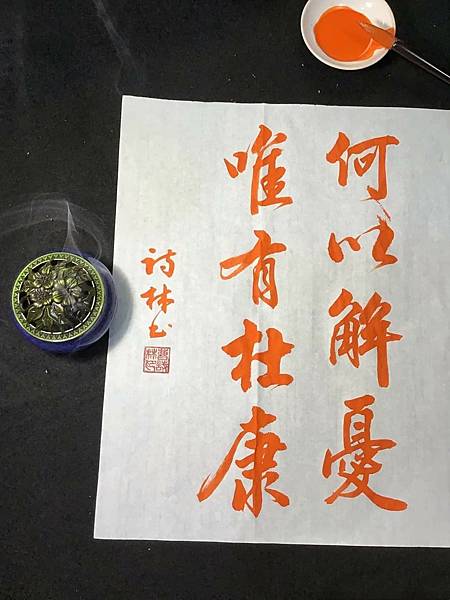 何以解憂
唯有杜康
詩林书